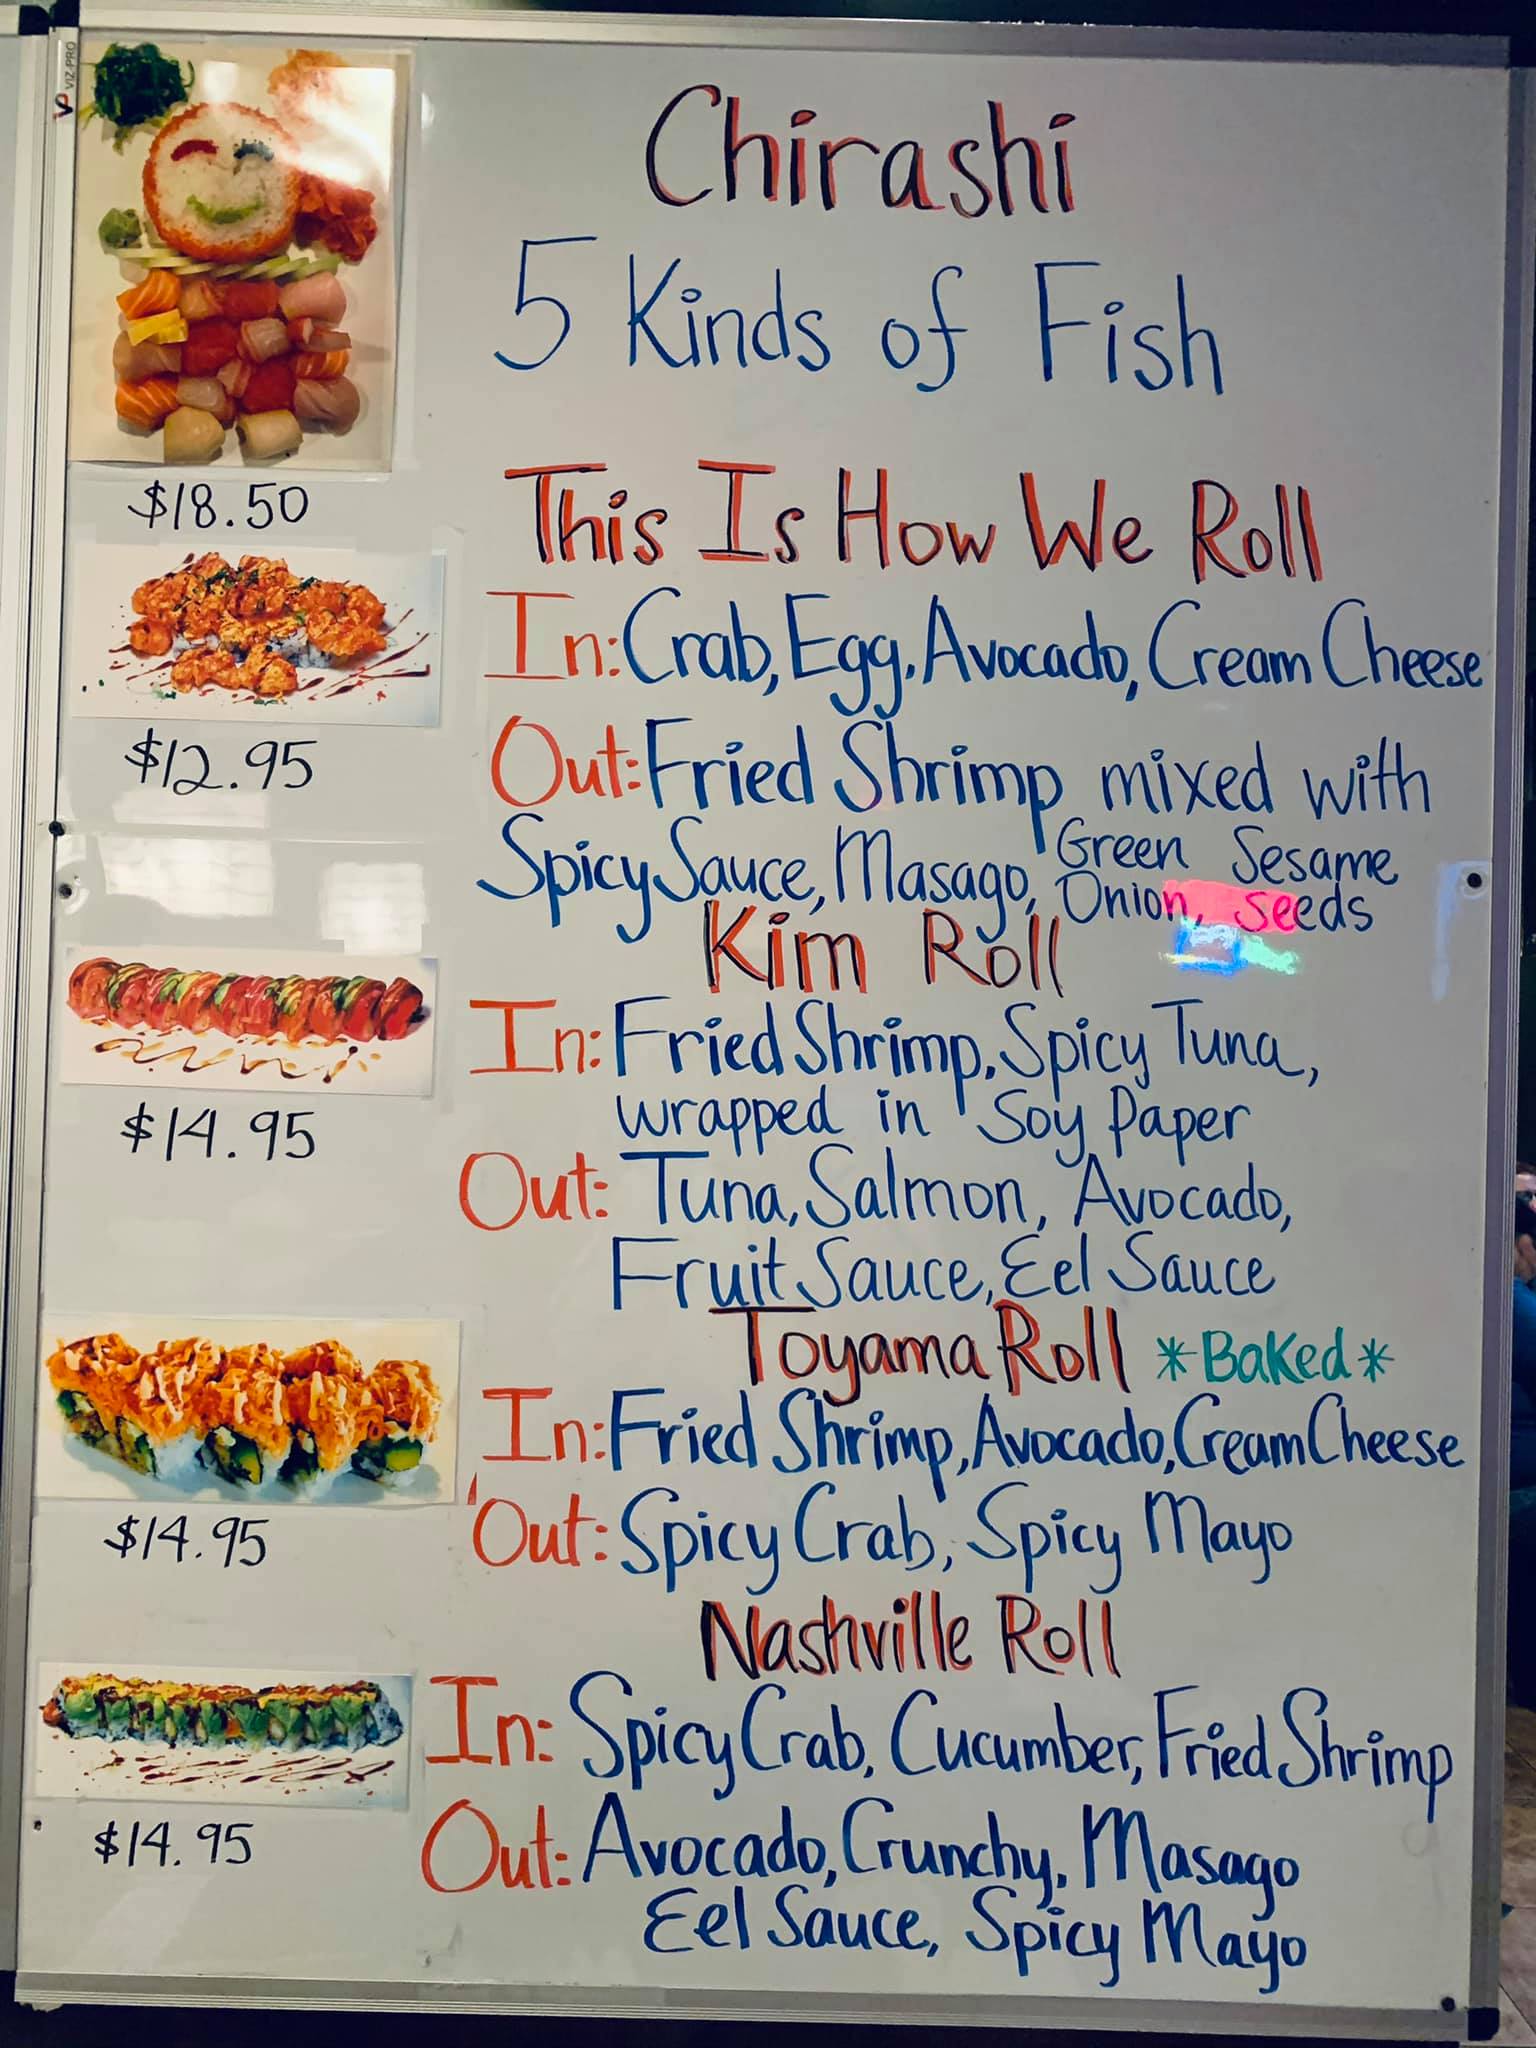 VP VIZ-PRO
Chirashi
5 Kinds of Fish
$18.50
This Is How We Roll
In: Crab, Egg, Avocado, Cream Cheese
Out: Fried Shrimp mixed with
Spicy Sauce, Masago, Green Onion, Sesame seeds
$12.95
Kim Roll
In: Fried Shrimp, Spicy Tuna,
wrapped in Soy Paper
Out: Tuna, Salmon, Avocado,
Fruit Sauce, Eel Sauce
$14.95
Toyama Roll *Baked*
In: Fried Shrimp, Avocado, Cream Cheese
Out: Spicy Crab, Spicy Mayo
$14.95
Nashville Roll
In: Spicy Crab, Cucumber, Fried Shrimp
Out: Avocado, Crunchy, Masago
Eel Sauce, Spicy Mayo
$14.95